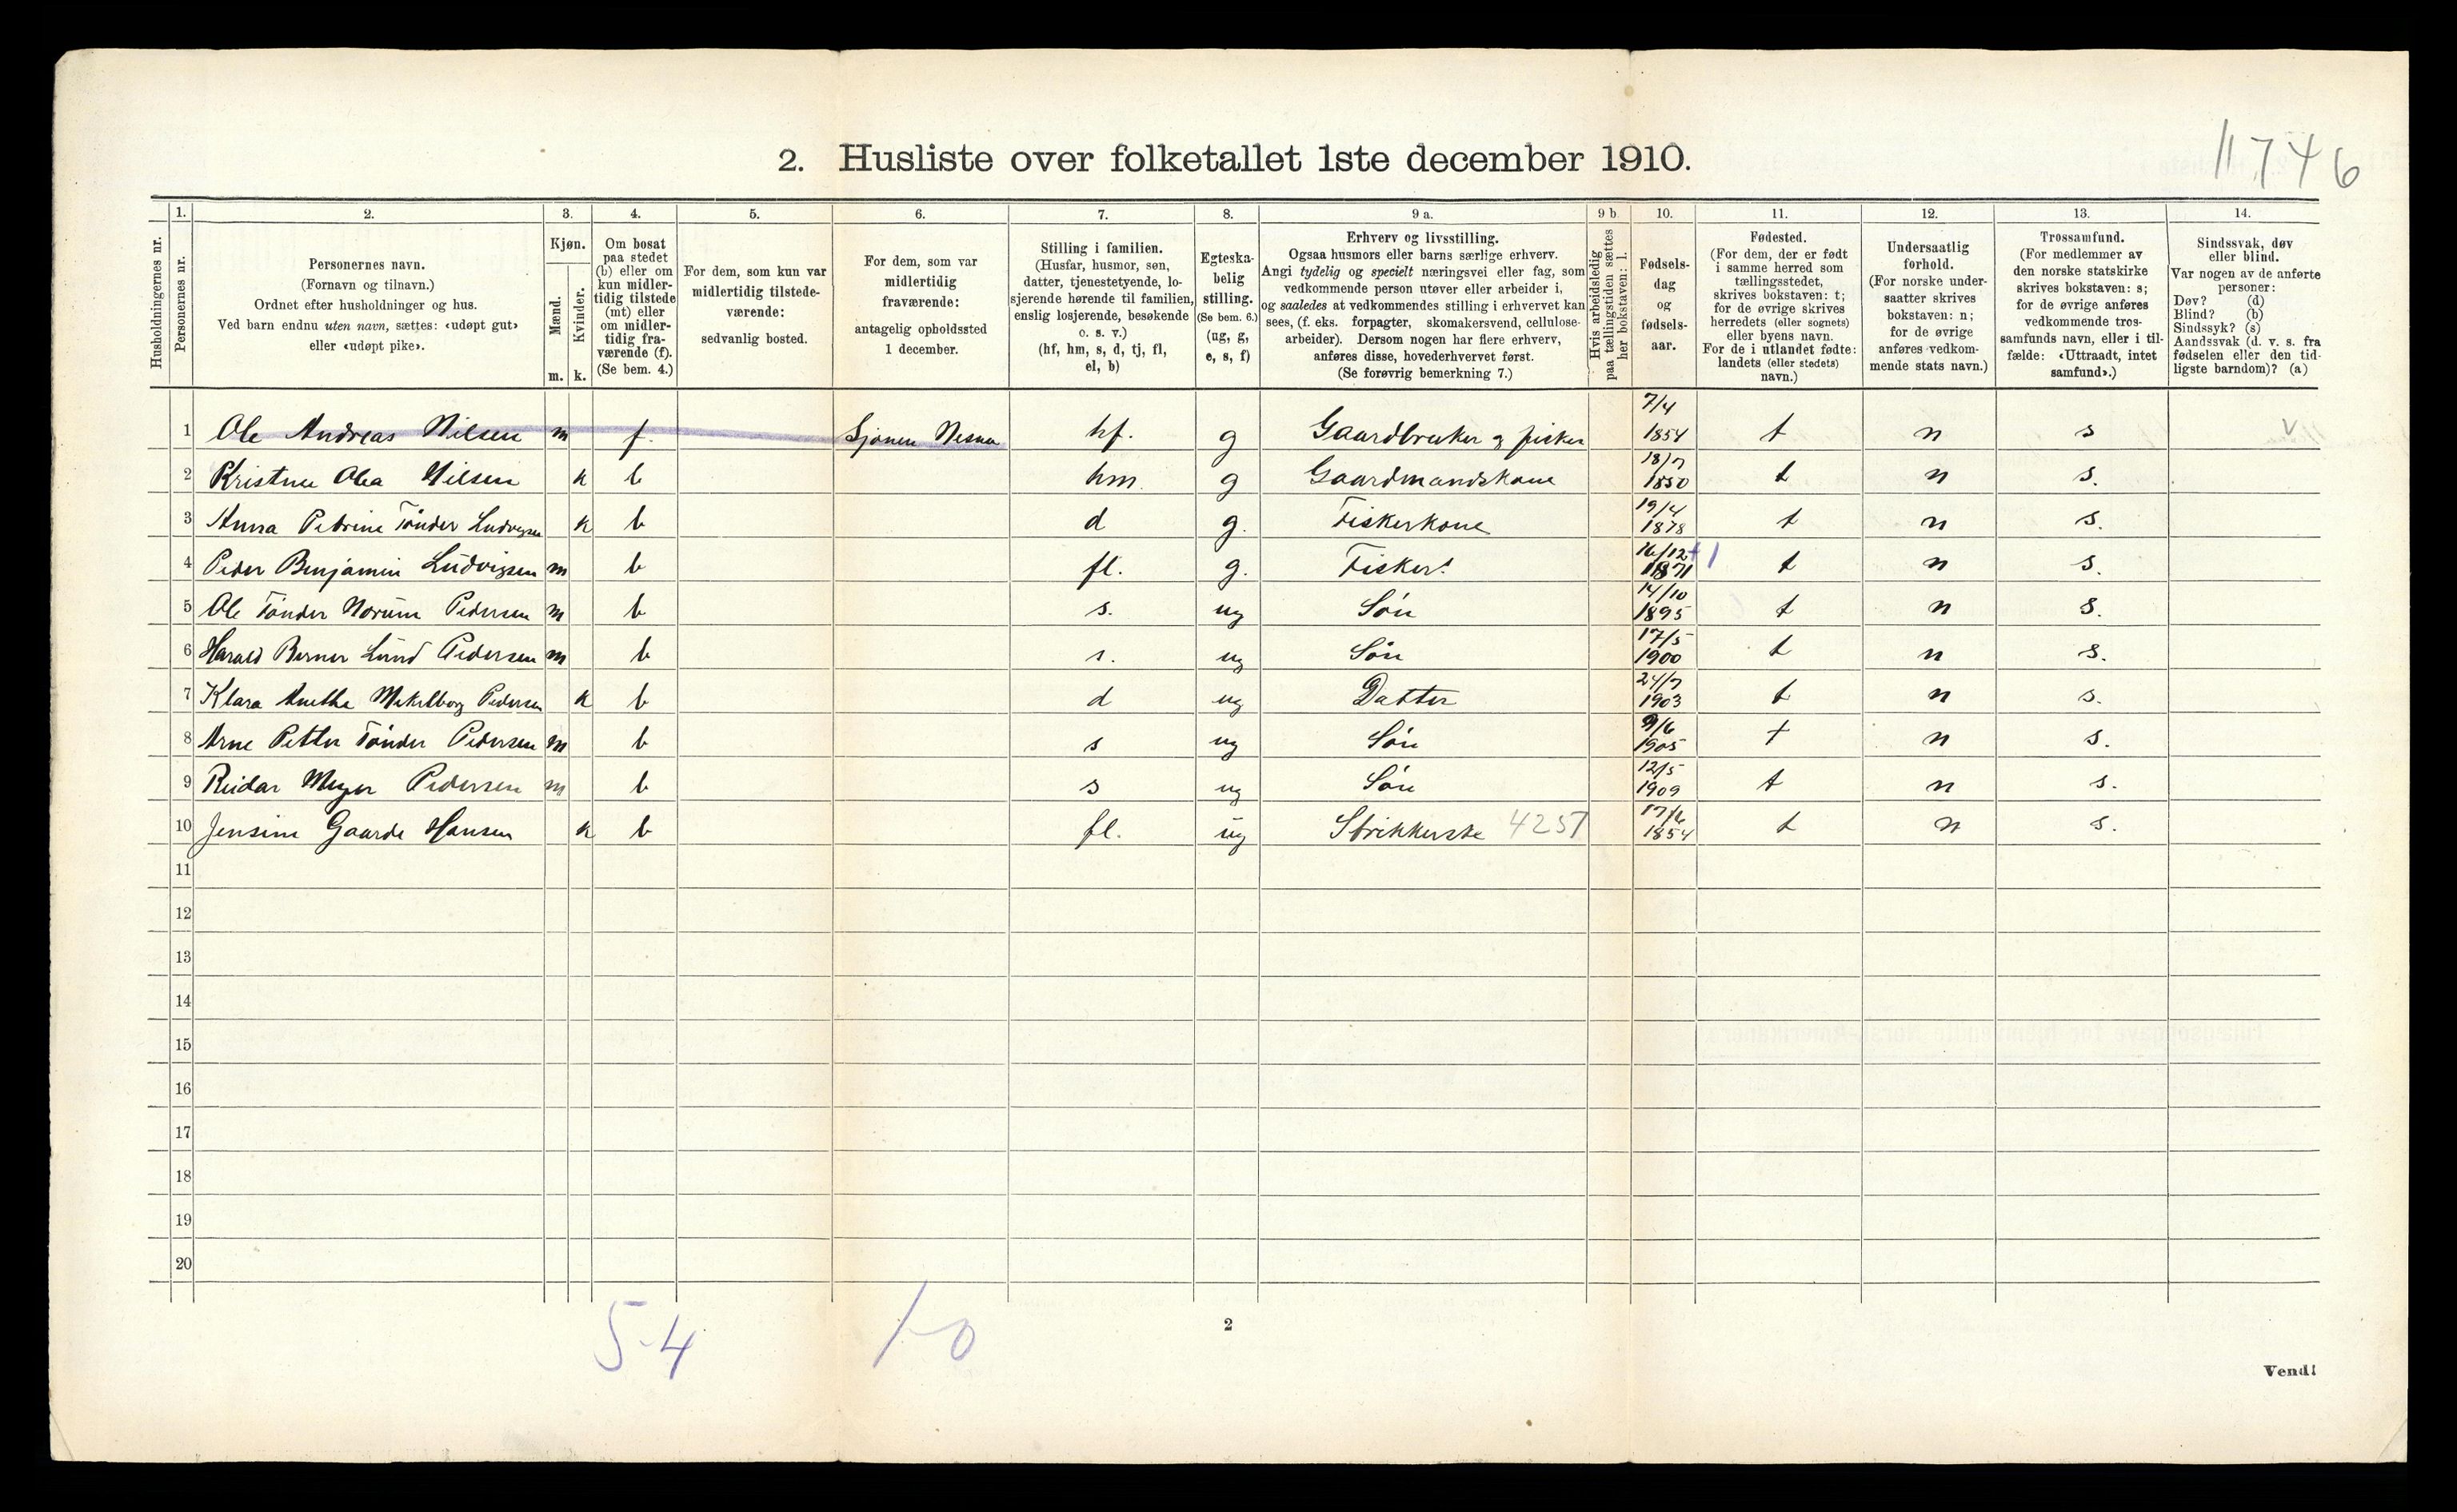 2. Husliste over folketallet 1ste december 1910.
11746
Husholdningernes nr.
1.
Personernes nr.
2.
Personernes navn.
(Fornavn og tilnavn.)
Ordnet efter husholdninger og hus.
Ved barn endnu uten navn, sættes: «udøpt gut»
eller «udøpt pike».
3.
Kjøn.
Mænd.
m.
Kvinder.
k.
4.
Om bosat
paa stedet
(b) eller om
kun midler-
tidig tilstede
(mt) eller
om midler-
tidig fra-
værende (f).
(Se bem. 4.)
5.
For dem, som kun var
midlertidig tilstede-
værende:
sedvanlig bosted.
6.
For dem, som var
midlertidig
fraværende:
antagelig opholdssted
1 december.
7.
Stilling i familien.
(Husfar, husmor, søn,
datter, tjenestetyende, lo-
sjerende hørende til familien,
enslig losjerende, besøkende
o. s. v.)
(hf, hm, s, d, tj, fl,
el, b)
8.
Egteska-
belig
stilling.
(Se bem. 6.)
(ug, g,
e, s, f)
9 a.
Erhverv og livsstilling.
Ogsaa husmors eller barns særlige erhverv.
Angi tydelig og specielt næringsvei eller fag, som
vedkommende person utøver eller arbeider i,
og saaledes at vedkommendes stilling i erhvervet kan
sees, (f. eks. forpagter, skomakersvend, cellulose-
arbeider). Dersom nogen har flere erhverv,
anføres disse, hovederhvervet først.
(Se forøvrig bemerkning 7.)
9 b.
Hvis arbeidsledig
paa tællingstiden sættes
her bokstaven: l.
10.
Fødsels-
dag
og
fødsels-
aar.
11.
Fødested.
(For dem, der er født
i samme herred som
tællingsstedet,
skrives bokstaven: t;
for de øvrige skrives
herredets (eller sognets)
eller byens navn.
For de i utlandet fødte:
landets (eller stedets)
navn.)
12.
Undersaatlig
forhold.
(For norske under-
saatter skrives
bokstaven: n;
for de øvrige
anføres vedkom-
mende stats navn.)
13.
Trossamfund.
(For medlemmer av
den norske statskirke
skrives bokstaven: s;
for de øvrige anføres
vedkommende tros-
samfunds navn, eller i til-
fælde: «Uttraadt, intet
samfund».)
14.
Sindssvak, døv
eller blind.
Var nogen av de anførte
personer:
Døv? (d)
Blind? (b)
Sindssyk? (s)
Aandssvak (d. v. s. fra
fødselen eller den tid-
ligste barndom)? (a)
1 Ole Andreas Nilsen m f. Sjonen Nesna hf. g Gaardbruker og fisker 7/4 1854 t n s v
2 Kristine Olea Nilsen k b hm. g Gaardmandskone 18/7 1850 t n s.
3 Anna Petrine Tönder Ludvigsen k b d g. Fiskerkone 19/4 1878 t n s.
4 Peder Benjamin Ludvigsen m b fl. g. Fisker. 16/12 1871 +1 t n s.
5 Ole Tönder Norum Pedersen m b s. ug Sön 14/10 1895 t n s.
6 Harald Berner Lund Pedersen m b s. ug Sön 17/5 1900 t n s.
7 Klara Anetha Mekelborg Pedersen k b d ug Datter 24/7 1903 t n s.
8 Arne Petter Tönder Pedersen m b s ug Sön 9/6 1905 t n s.
9 Reidar Meyer Pedersen m b s ug Sön 12/5 1909 t n s.
10 Jensine Gaarde Hansen k b fl. ug Strikkerske 4257 17/6 1854 t n s.
11
12
13
14
15
16
17
18
19
20
5-4
1-0
2
Vend!